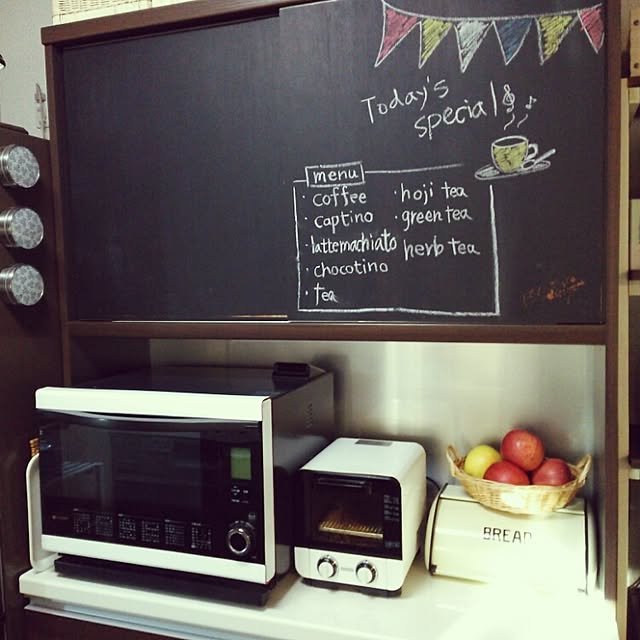 Today's
special
menu
· coffee
· captino
· lattemachiato
· chocotino
· tea
· hoji tea
· green tea
herb tea
BREAD